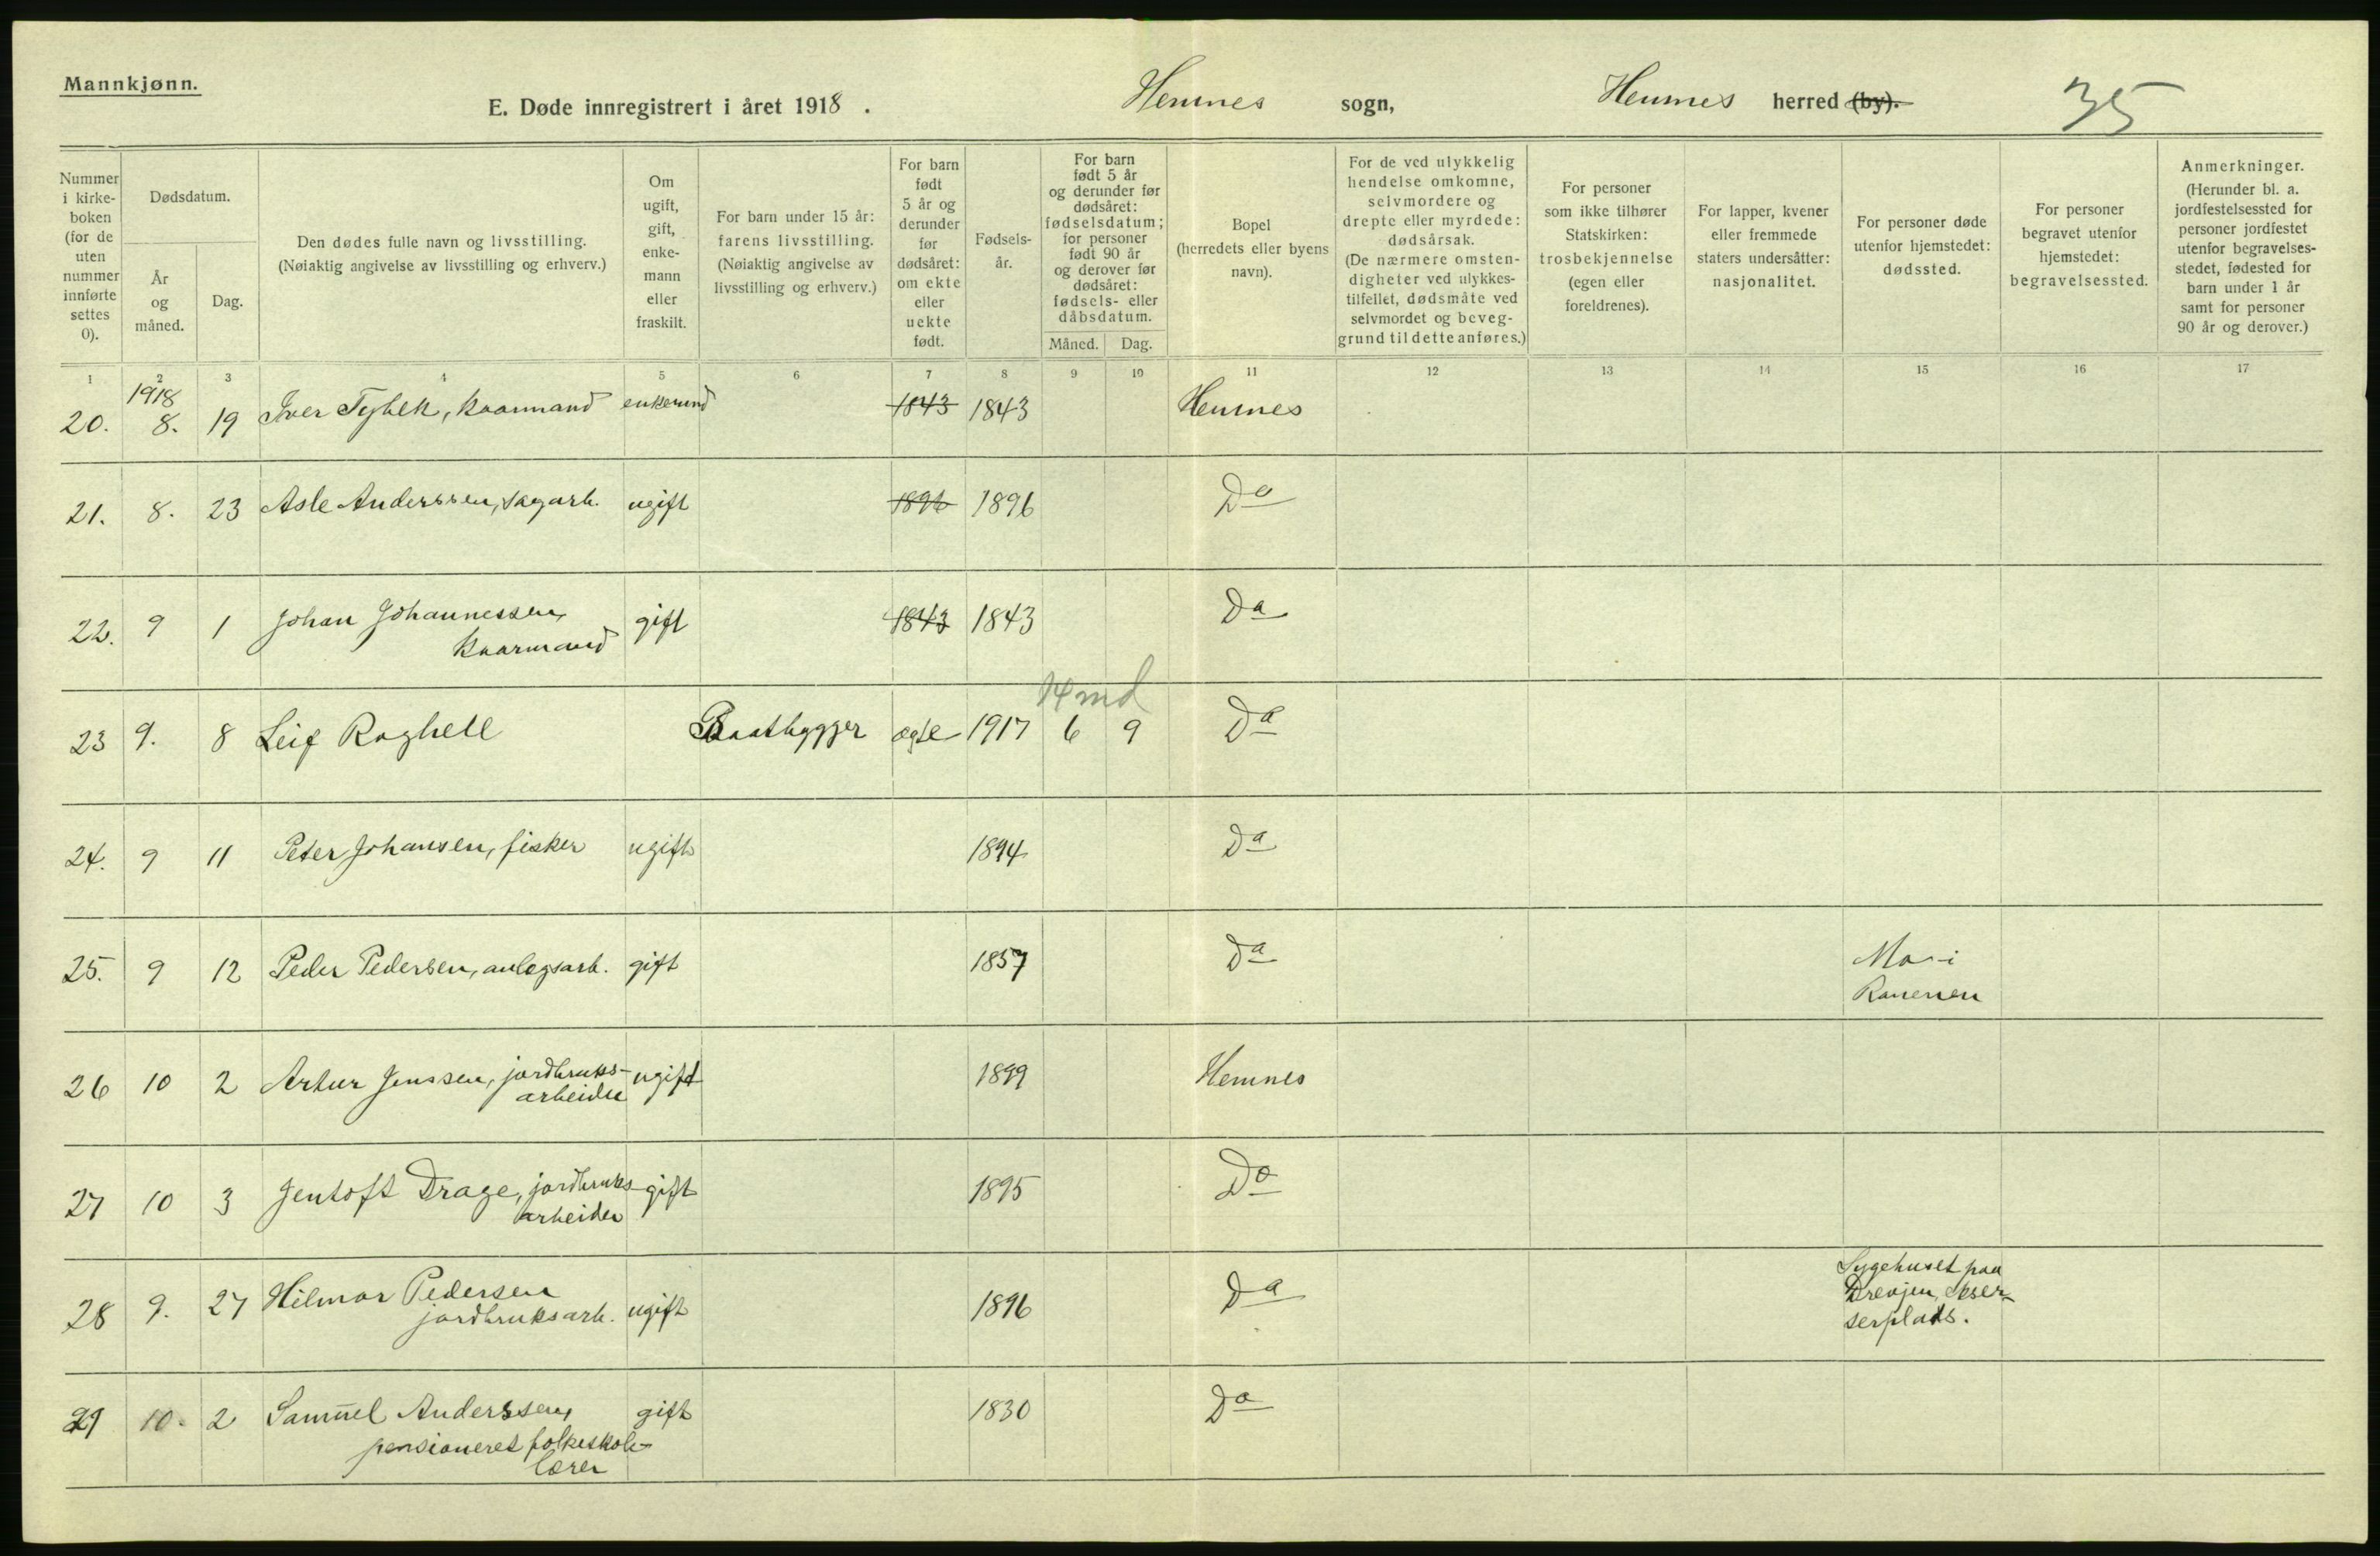 Mannkjønn.
E. Døde innregistrert i året 1918. Hemnes sogn, Hemnes herred (by). 35
Nummer i kirke-boken (for de uten nummer innførte settes 0).
Dødsdatum.
År og måned.
Dag.
Den dødes fulle navn og livsstilling.
(Nøiaktig angivelse av livsstilling og erhverv.)
Om ugift, gift, enke-mann eller fraskilt.
For barn under 15 år: farens livsstilling.
(Nøiaktig angivelse av livsstilling og erhverv.)
For barn født 5 år og derunder før dødsåret: om ekte eller uekte født.
Fødsels-år.
For barn født 5 år og derunder før dødsåret: fødselsdatum; for personer født 90 år og derover før dødsåret: fødsels- eller dåbsdatum.
Måned. Dag.
Bopel (herredets eller byens navn).
For de ved ulykkelig hendelse omkomne, selvmordere og drepte eller myrdede: dødsårsak.
(De nærmere omsten-digheter ved ulykkes-tilfellet, dødsmåte ved selvmordet og beveg-grund til dette anføres.)
For personer som ikke tilhører Statskirken: trosbekjennelse (egen eller foreldrenes).
For lapper, kvener eller fremmede staters undersåtter: nasjonalitet.
For personer døde utenfor hjemstedet: dødssted.
For personer begravet utenfor hjemstedet: begravelsessted.
Anmerkninger.
(Herunder bl. a. jordfestelsessted for personer jordfestet utenfor begravelses-stedet, fødested for barn under 1 år samt for personer 90 år og derover.)
1 2 3 4 5 6 7 8 9 10 11 12 13 14 15 16 17
1918
20. 8. 19 Iver Tybek, kaarmand enkemnd 1843 1843 Hemnes
21. 8. 23 Asle Anderssen, sagarb. ugift 1896 1896 Do
22. 9 1 Johan Johannessen, gift 1843 1843 Do
kaarmand
14 md
23 9. 8 Leif Roghell Baatbygger ægte 1917 6 9 Do
24. 9 11 Peter Johansen, fisker ugift 1894 Do
25. 9 12 Peder Pedersen, anlegsarb. gift 1857 Do Mo i
Ranenen
26 10 2 Artur Jenssen, jordbruks- ugift 1899 Hemnes
arbeider
27 10 3 Jentoft Drage, jordbruks- gift 1895 Do
arbeider
28 9. 27 Hilmar Pedersen ugift 1896 Do Sygehuset paa
jordbruksarb. Drevjen, 
serplads.
29 10. 2 Samuel Anderssen, gift 1830 Do
pensioneret folkeskole-
lærer